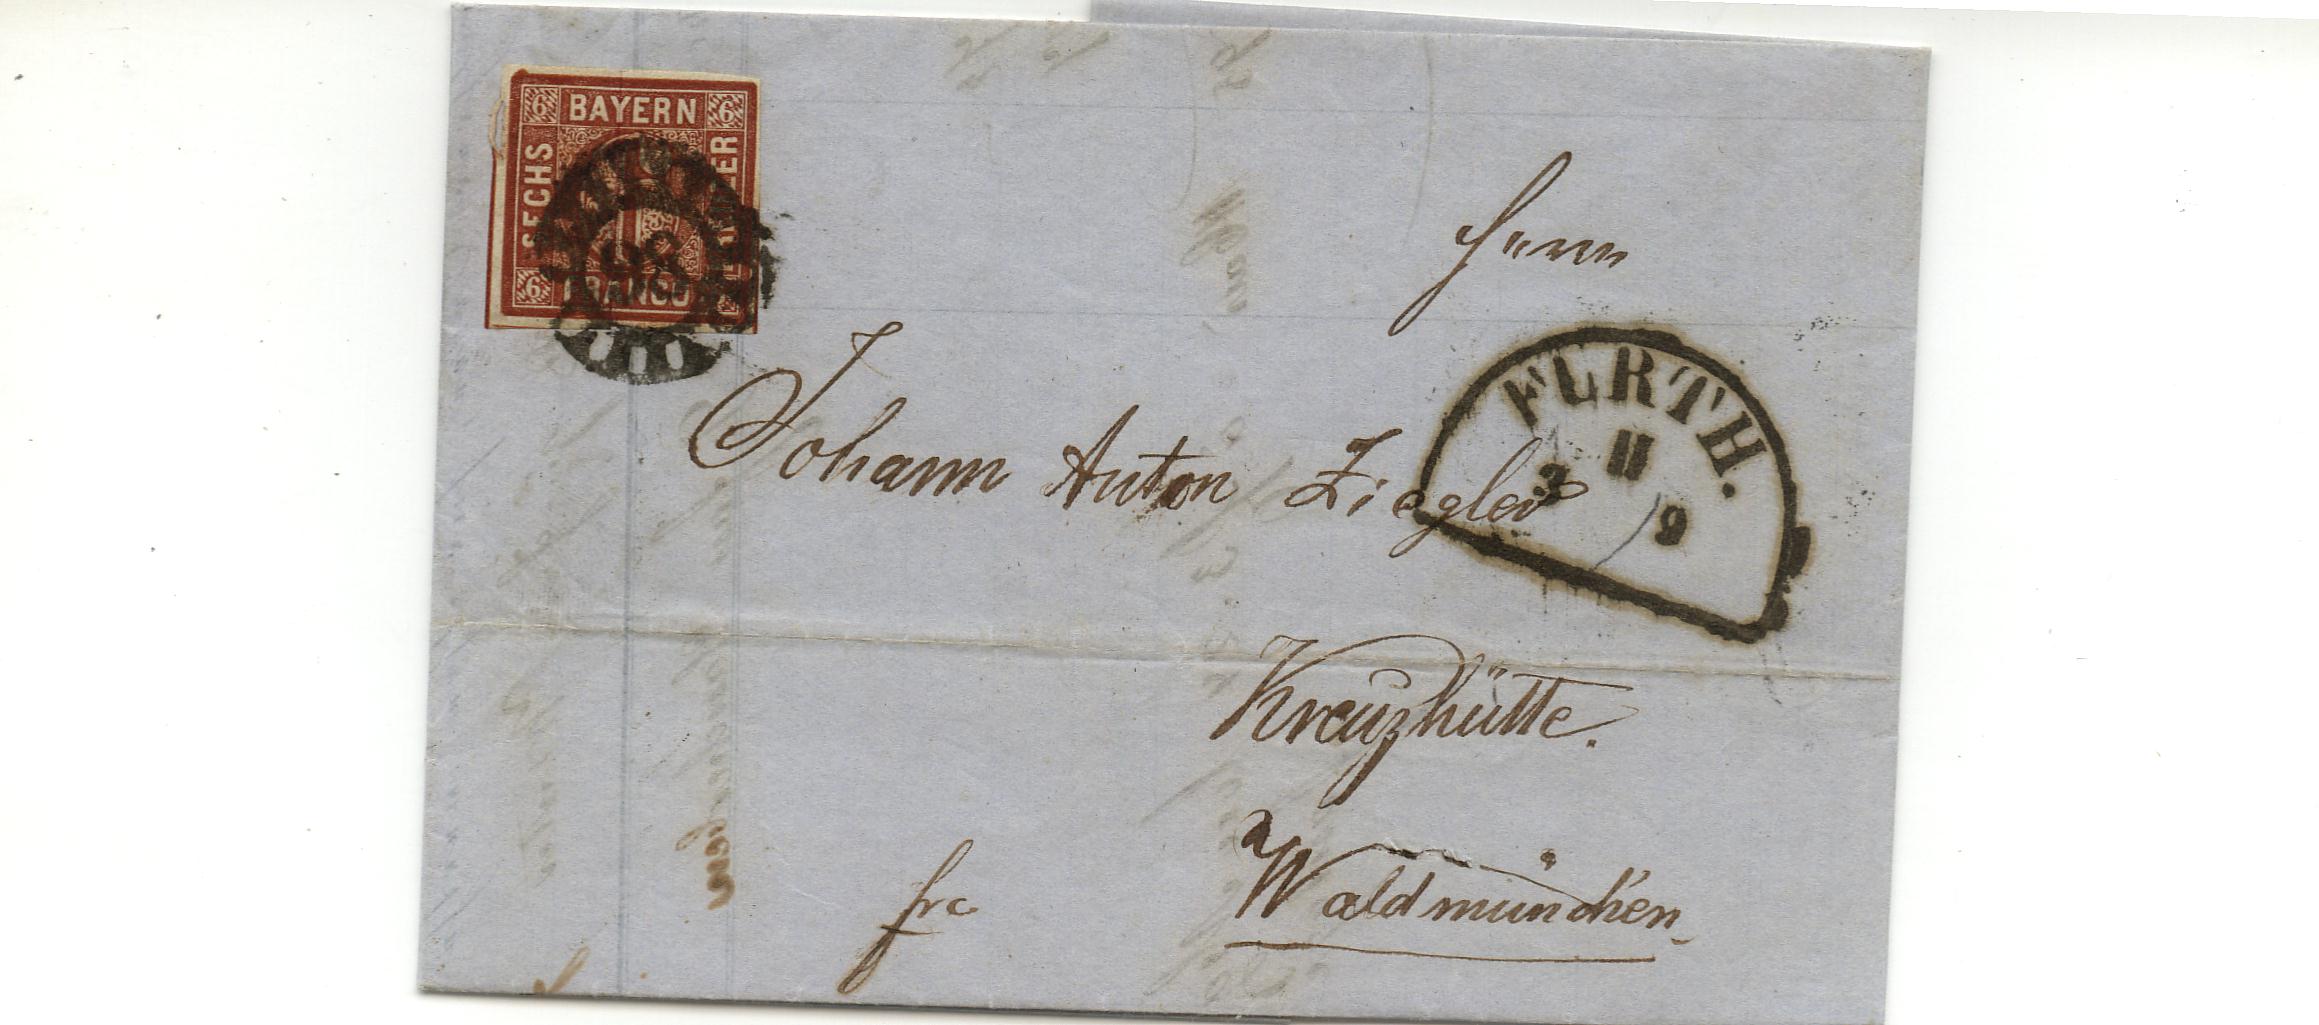 6 BAYERN 6
SECHS
6 FRANCO
98
Herrn
Johann Anton Ziegler
FÜRTH.
11
3 9
Kreuzhütte.
Waldmünchen
frc